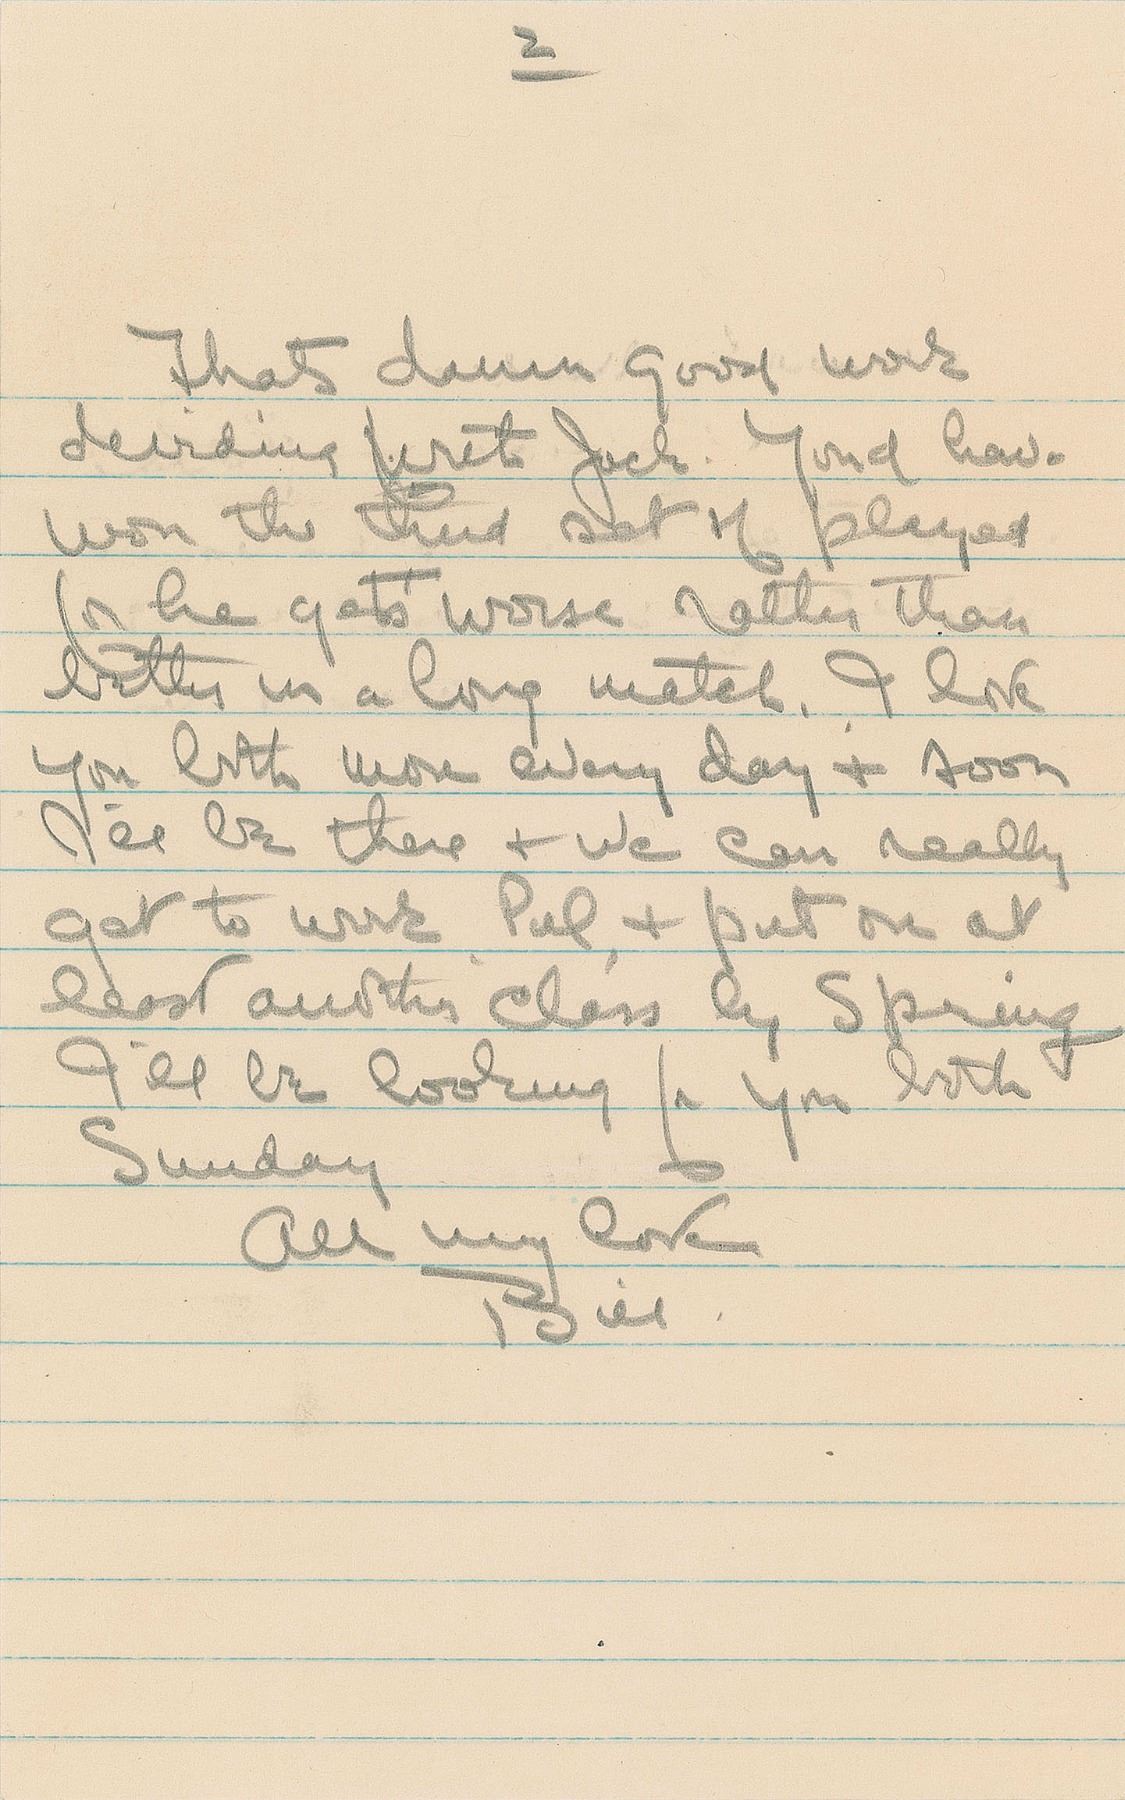 2
Thats damn good work
deividing first Jack. Youd have
won the third set if played
for he gets worse rather than
better in a long match. I love
you both more every day + soon
I'll be there + we can really
get to work Pal, + put on at
least another class by Spring
I'll be looking for you both
Sunday
All my love
Bill.